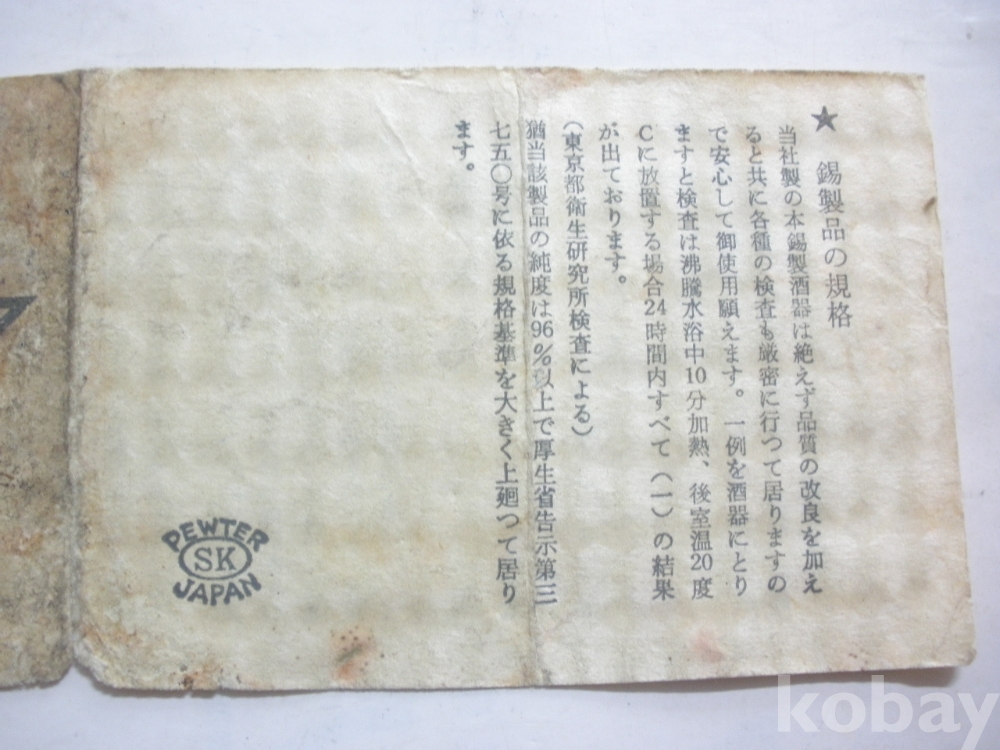 ★ 錫製品の規格
当社製の本錫製酒器は絶えず品質の改良を加え
ると共に各種の検査も厳密に行つて居りますの
で安心して御使用願えます。一例を酒器にとり
ますと検査は沸騰水浴中10分加熱、後室温20度
Cに放置する場合24時間内すべて(一)の結果
が出ております。
(東京都衛生研究所検査による)
猶当該製品の純度は96%以上で厚生省告示第三
七五〇号に依る規格基準を大きく上廻つて居り
ます。
PEWTER
SK
JAPAN
kobay